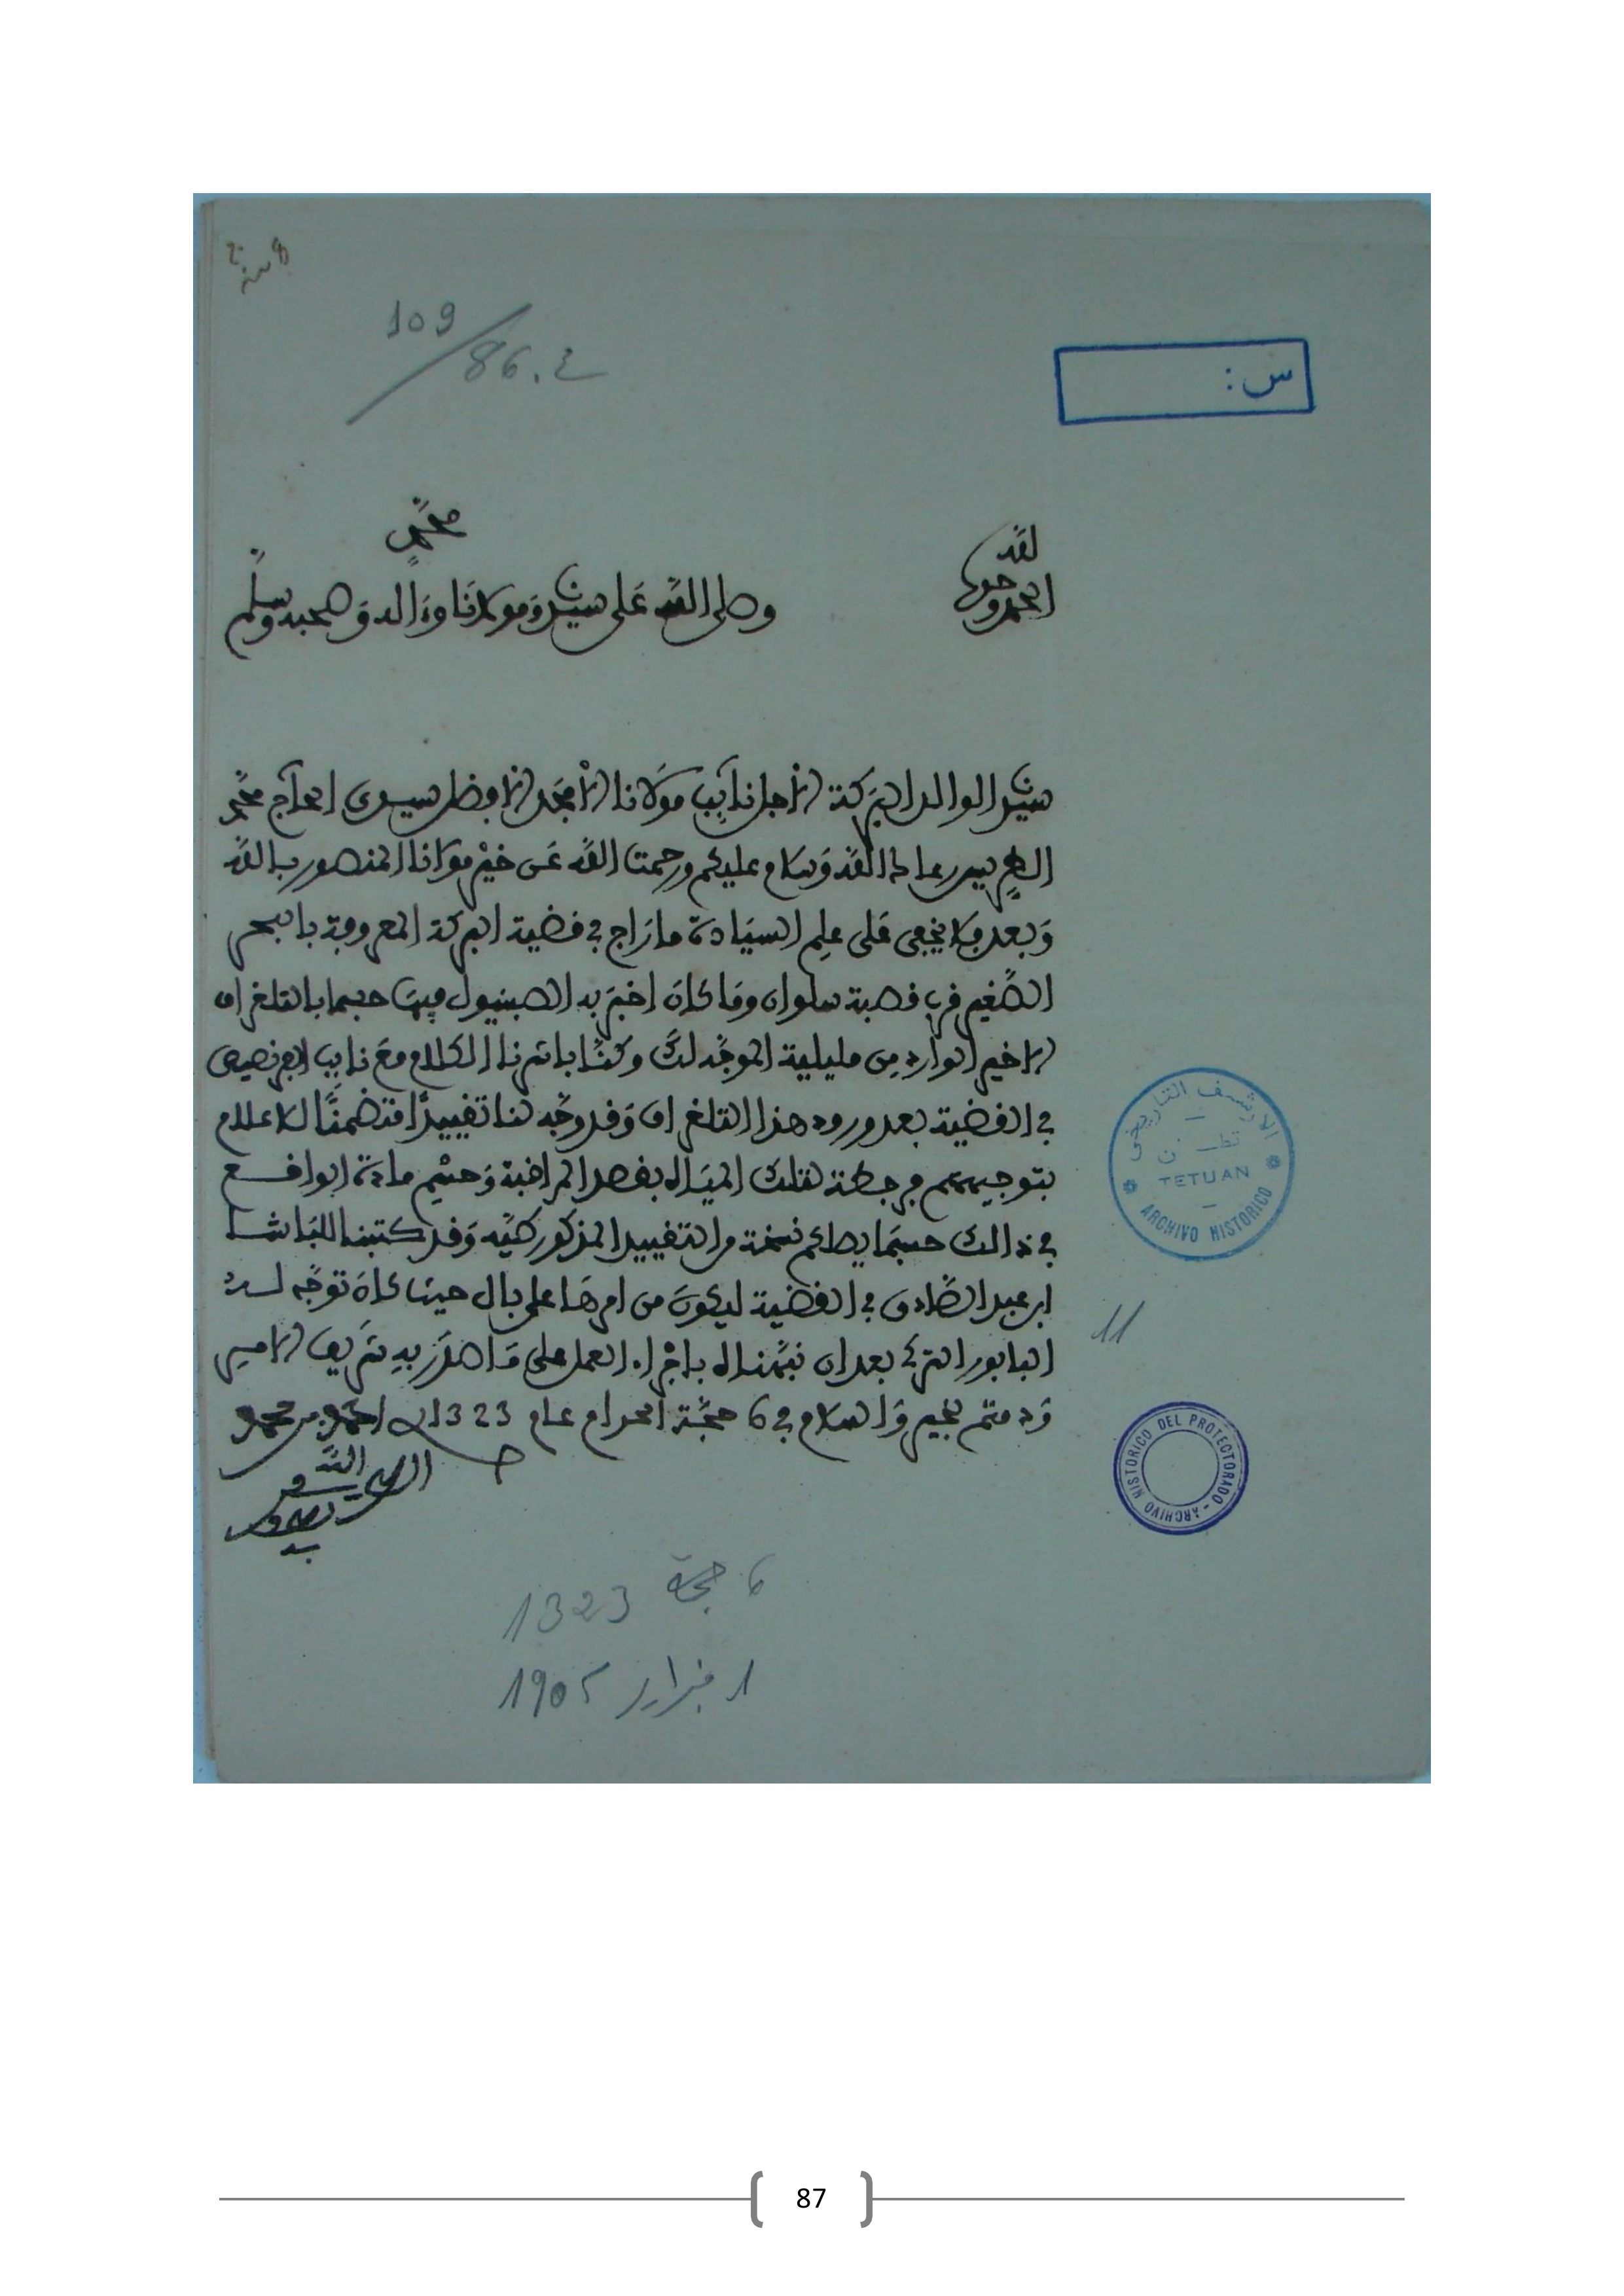 109/86.4
س :
الحمد لله وحده
وصلى الله على سيدنا ومولانا محمد وءاله وصحبه وسلم
سيدنا الوالد البركة الأجل نايب مولانا الأمجد الأفضل سيدي الحاج محمد
رعاك الله وسلام عليكم ورحمت الله عن خير مولانا المنصور بالله
وبعد فلا يخفى على علم السيادة ما راج في قضية البركة المعروفة بالبحر
الصغير قرب قصبة سلوان وما كان اخبر به الصبنيول فيها حسبما بالتلغراف
الاخير الوارد من مليلية الموجه لك وكنا باشرنا الكلام مع نايب الفرنصيص
في القضية بعد ورود هذا التلغراف وقد وجه لنا تقييدا متضمنا الاعلام
بتوجيههم فرجطة لتلك المياه بقصد المراقبة وحسم مادة الواقع
في ذالك حسبما يصلكم نسخة من التقييد المذكور طيه وقد كتبنا للباشا
ابن عبد الصادق في القضية ليكون من امرها على بال حيث كان توجه لسد
البابور التركي بعد ان نبهناه باجراء العمل على ما صدر به شريف الامر
ودمتم بخير والسلام في 6 حجة الحرام عام 1323 احمد بن محمد
الله
الارشيف التاريخي
تطـــن
TETUAN
ARCHIVO HISTORICO
11
ARCHIVO HISTORICO DEL PROTECTORADO -
6 حجة 1323
1 فبراير 190
87